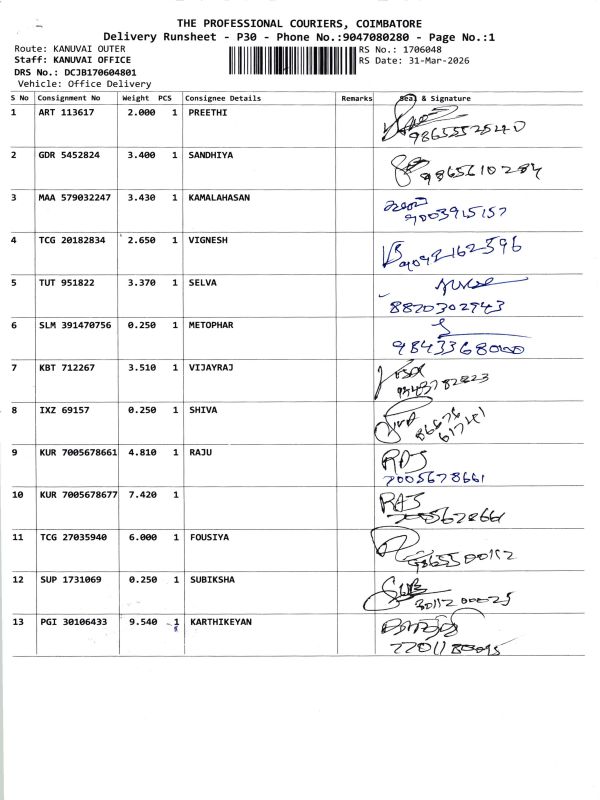 THE PROFESSIONAL COURIERS, COIMBATORE
Delivery Runsheet - P30 - Phone No.:9047080280 - Page No.:1
Route: KANUVAI OUTER RS No.: 1706048
Staff: KANUVAI OFFICE RS Date: 31-Mar-2026
DRS No.: DCJB170604801
Vehicle: Office Delivery
S No Consignment No Weight PCS Consignee Details Remarks Seal & Signature
1 ART 113617 2.000 1 PREETHI
2 GDR 5452824 3.400 1 SANDHIYA
9865610284
3 MAA 579032247 3.430 1 KAMALAHASAN
9003915157
4 TCG 20182834 2.650 1 VIGNESH
9092162596
5 TUT 951822 3.370 1 SELVA
8820302943
6 SLM 391470756 0.250 1 METOPHAR
9843368000
7 KBT 712267 3.510 1 VIJAYRAJ
8 IXZ 69157 0.250 1 SHIVA
9 KUR 7005678661 4.810 1 RAJU
RAJ
7005678661
10 KUR 7005678677 7.420 1
RAJ
7005678661
11 TCG 27035940 6.000 1 FOUSIYA
12 SUP 1731069 0.250 1 SUBIKSHA
13 PGI 30106433 9.540 1 KARTHIKEYAN